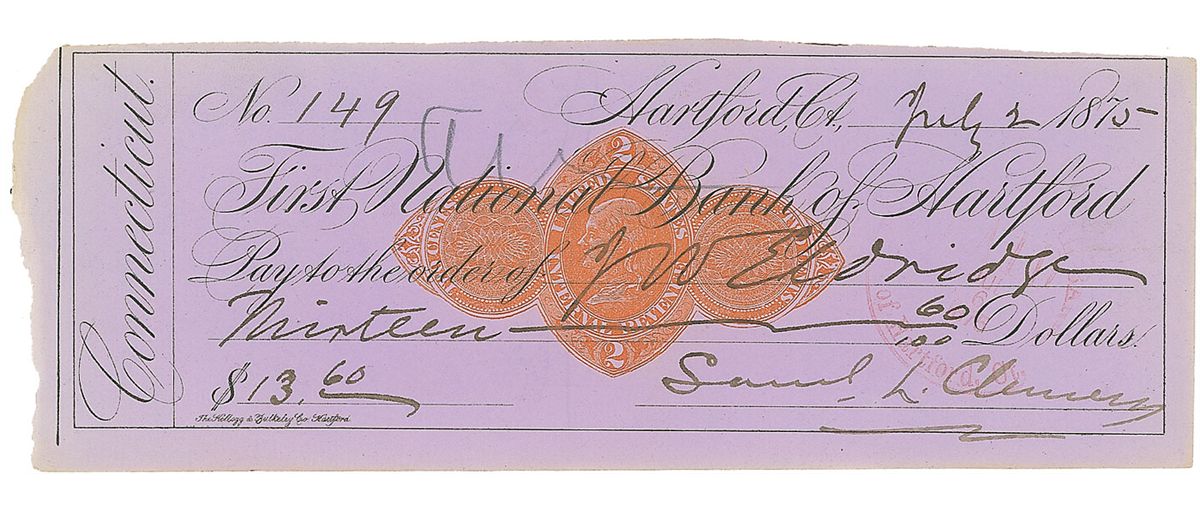 Connecticut.
No. 149 Hartford, Ct., July 2 1875
First National Bank of Hartford
Pay to the order of J W Eldridge
Thirteen 60/100 Dollars.
$13.60 Saml. L. Clemens
The Kellogg & Bulkeley Co. Hartford
2
UNITED STATES
INTERNAL REVENUE
2
of Hartford